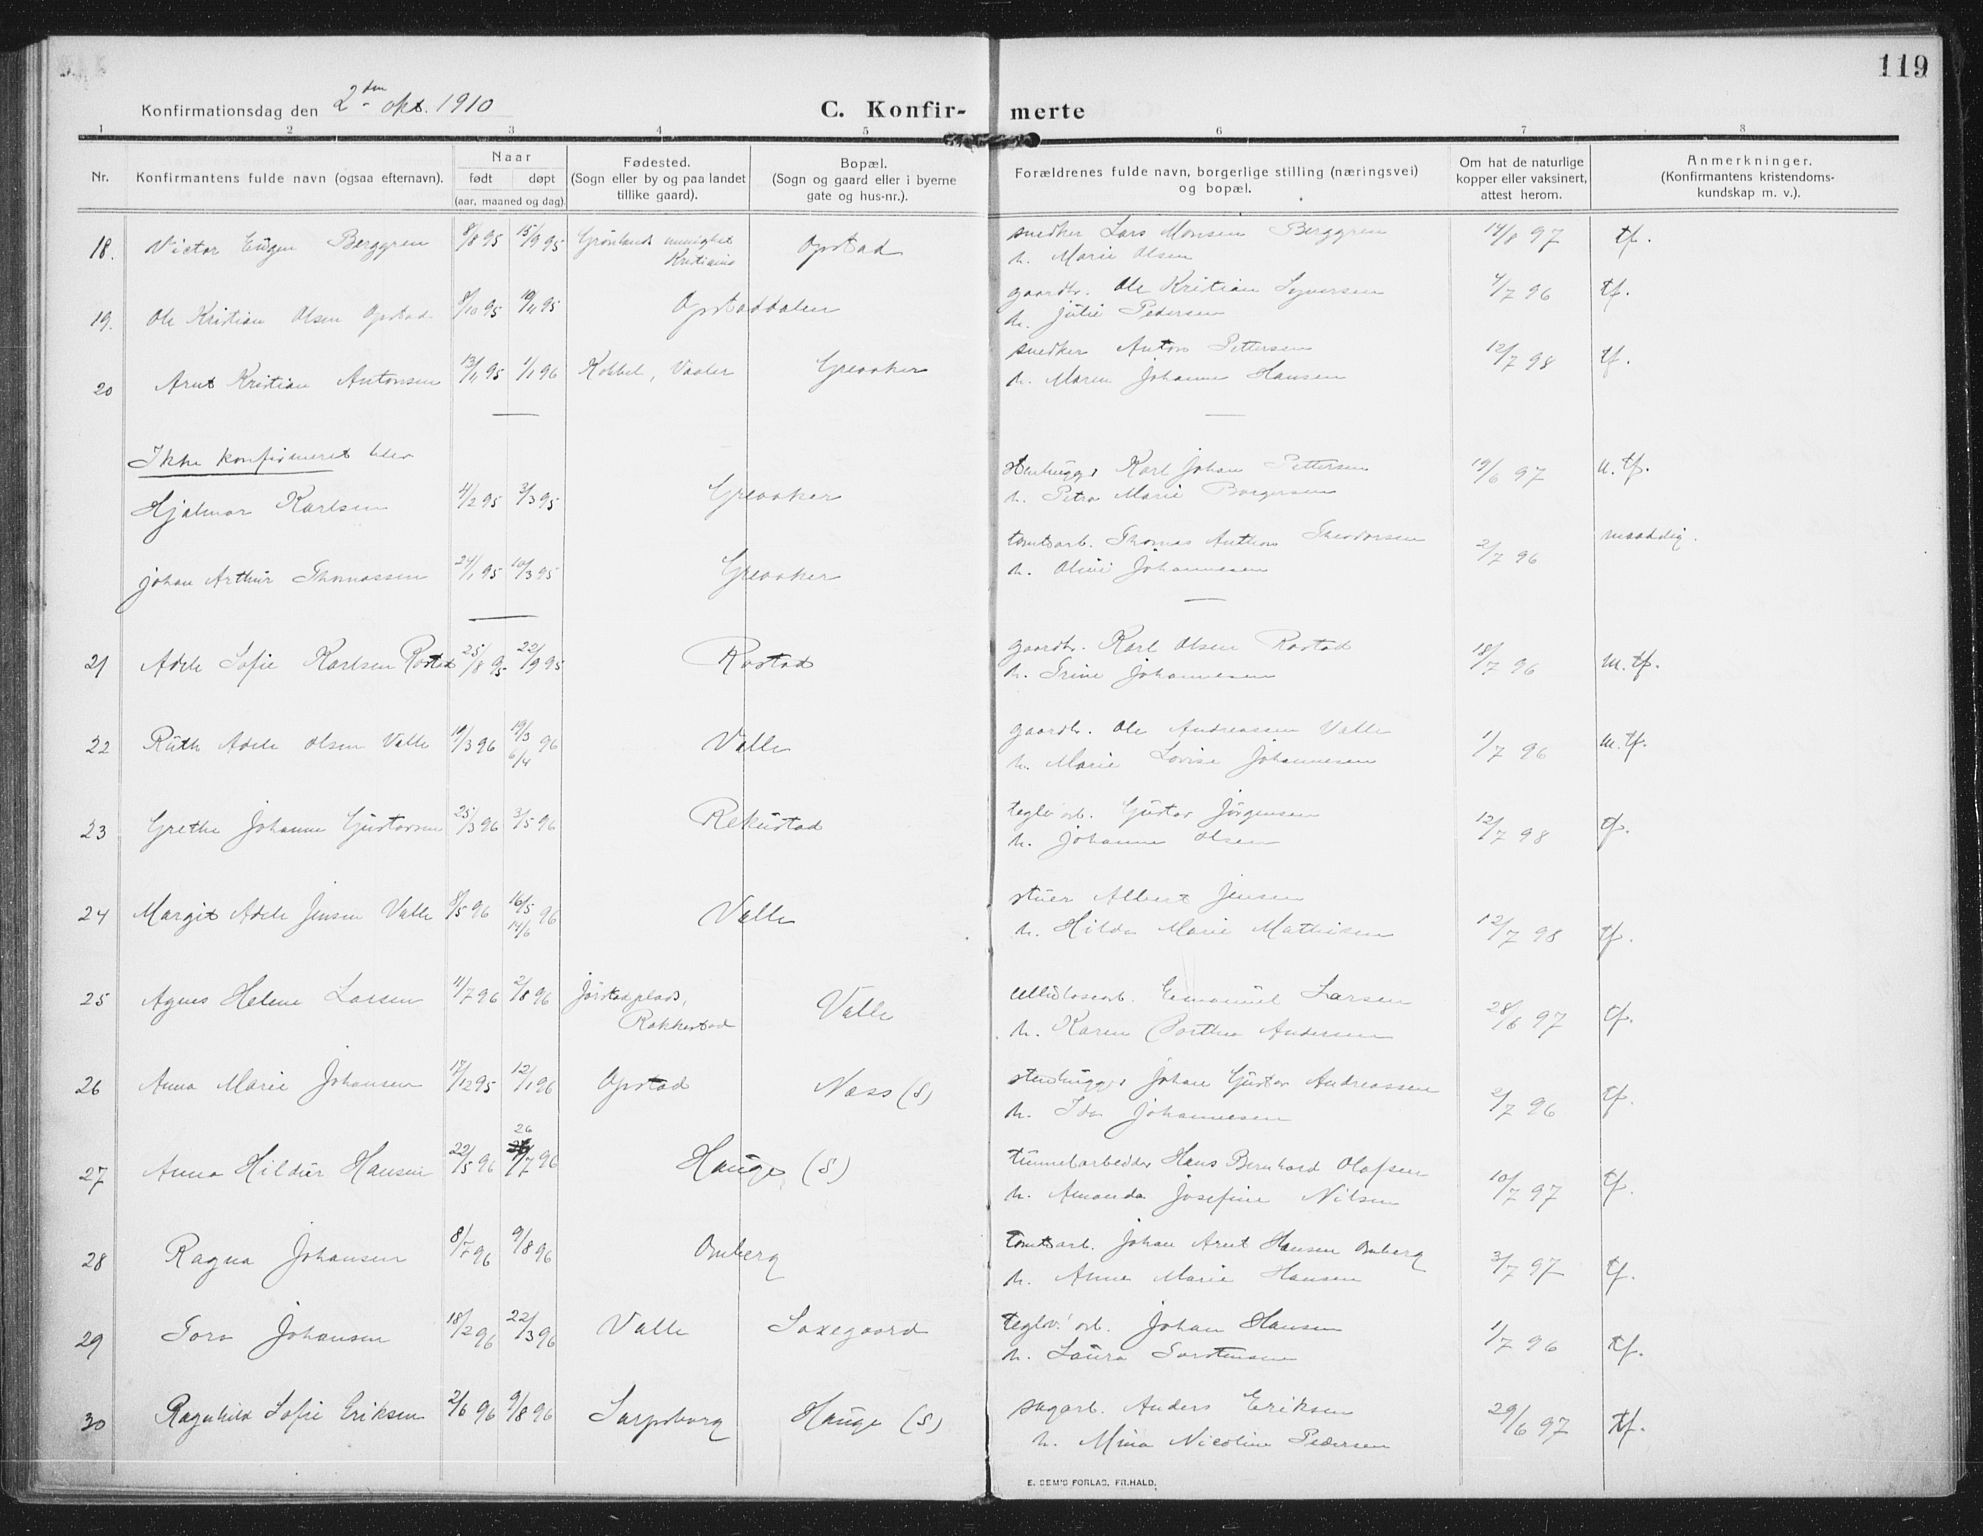 119
Konfirmationsdag den 2den okt. 1910
C. Konfir- merte
1 2 3 4 5 6 7 8
Nr. Konfirmantens fulde navn (ogsaa efternavn). Naar født døpt (aar, maaned og dag). Fødested. (Sogn eller by og paa landet tillike gaard). Bopæl. (Sogn og gaard eller i byerne gate og hus-nr.). Forældrenes fulde navn, borgerlige stilling (næringsvei) og bopæl. Om hat de naturlige kopper eller vaksinert, attest herom. Anmerkninger. (Konfirmantens kristendoms-kundskap m. v.).
18. Victor Eugen Berggren 8/8 95 15/9 95 Grønlands menighet Kristiania Opstad snedker Lars Monsen Berggren 14/8 97 tf.
h. Marie Olsen
19. Ole Kristian Olsen Opstad 8/10 95 10/11 95 Opstaddalen gaardbr. Ole Kristian Syversen 4/7 96 tf.
h. Julie Pedersen
20 Arnt Kristian Antonsen 13/11 95 1/1 96 Kobbel, Vaaler Greaaker snedker Anton Pettersen 12/7 98 tf.
h. Maren Johanne Hansen
Ikke konfirmeret blev
Hjalmar Karlsen 4/2 95 3/3 95 Greaaker stenhugger Karl Johan Pettersen 19/6 97 u. tf.
h. Petra Marie Borgersen
Johan Arthur Thomassen 24/1 95 10/3 95 Greaaker tomtearb. Thomas Anthon Theodorsen 2/7 96 maadelig.
h. Oline Johannesen
21 Adele Sofie Karlsen Rostad 25/8 95 22/9 95 Rostad gaardbr. Karl Olsen Rostad 18/7 96 m. tf.
h. Trine Johannesen
22 Ruth Adele Olsen Valle 4/3 96 19/3 6/4 96 Valle gaardbr. Ole Andreassen Valle 1/7 96 m. tf.
h. Marie Lovise Johannesen
23 Grethe Johanne Gustavsen 25/3 96 3/5 96 Rekustad teglv. arb. Gustav Jørgensen 12/7 98 tf.
h. Johanne Olsen
24 Margit Adele Jensen Valle 8/5 96 16/5 14/6 96 Valle stuer Albert Jensen 12/7 98 tf.
h. Hilda Marie Mathisen
25 Agnes Helene Larsen 11/7 96 2/8 96 Jørstadplads, Rakkestad Valle cellulosearb. Emanuel Larsen 28/6 97 tf.
h. Karen Barthea Andersen
26 Anna Marie Johansen 17/12 95 12/1 96 Opstad Næss (S) stenhugger Johan Gustav Andreassen 2/7 96 tf.
h. Ida Johannesen
27 Anna Hildur Hansen 22/5 96 26/7 96 Hauge (S) tunnelarbeider Hans Bernhard Olafsen 10/7 97 tf.
h. Amanda Josefine Nilsen
28 Ragna Johansen 8/7 96 9/8 96 Omberg tomtearb. Johan Arnt Hansen Omberg 3/7 97 tf.
h. Anne Marie Hansen
29 Tora Johansen 18/2 96 22/3 96 Valle Saxegaard teglv. arb. Johan Hansen 1/7 96 tf.
h. Laura Torstensen
30 Ragnhild Sofie Eriksen 2/6 96 9/8 96 Sarpsborg Hauge (S) sagarb. Anders Eriksen 29/6 97 tf.
h. Mina Nicoline Pedersen
E. SEM'S FORLAG, FR.HALD.